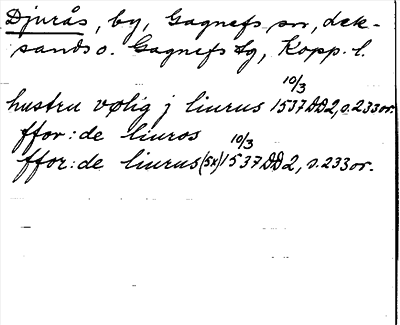 Djurås, by, Gagnefs sn, Lek-
sands o. Gagnefs tg, Kopp. l.
10/3
hustru vølig j liurus 1537 DD2, s.233 or.
ffor: de liuros
10/3
ffor: de liurus (5x) 1537 DD2, s.233 or.